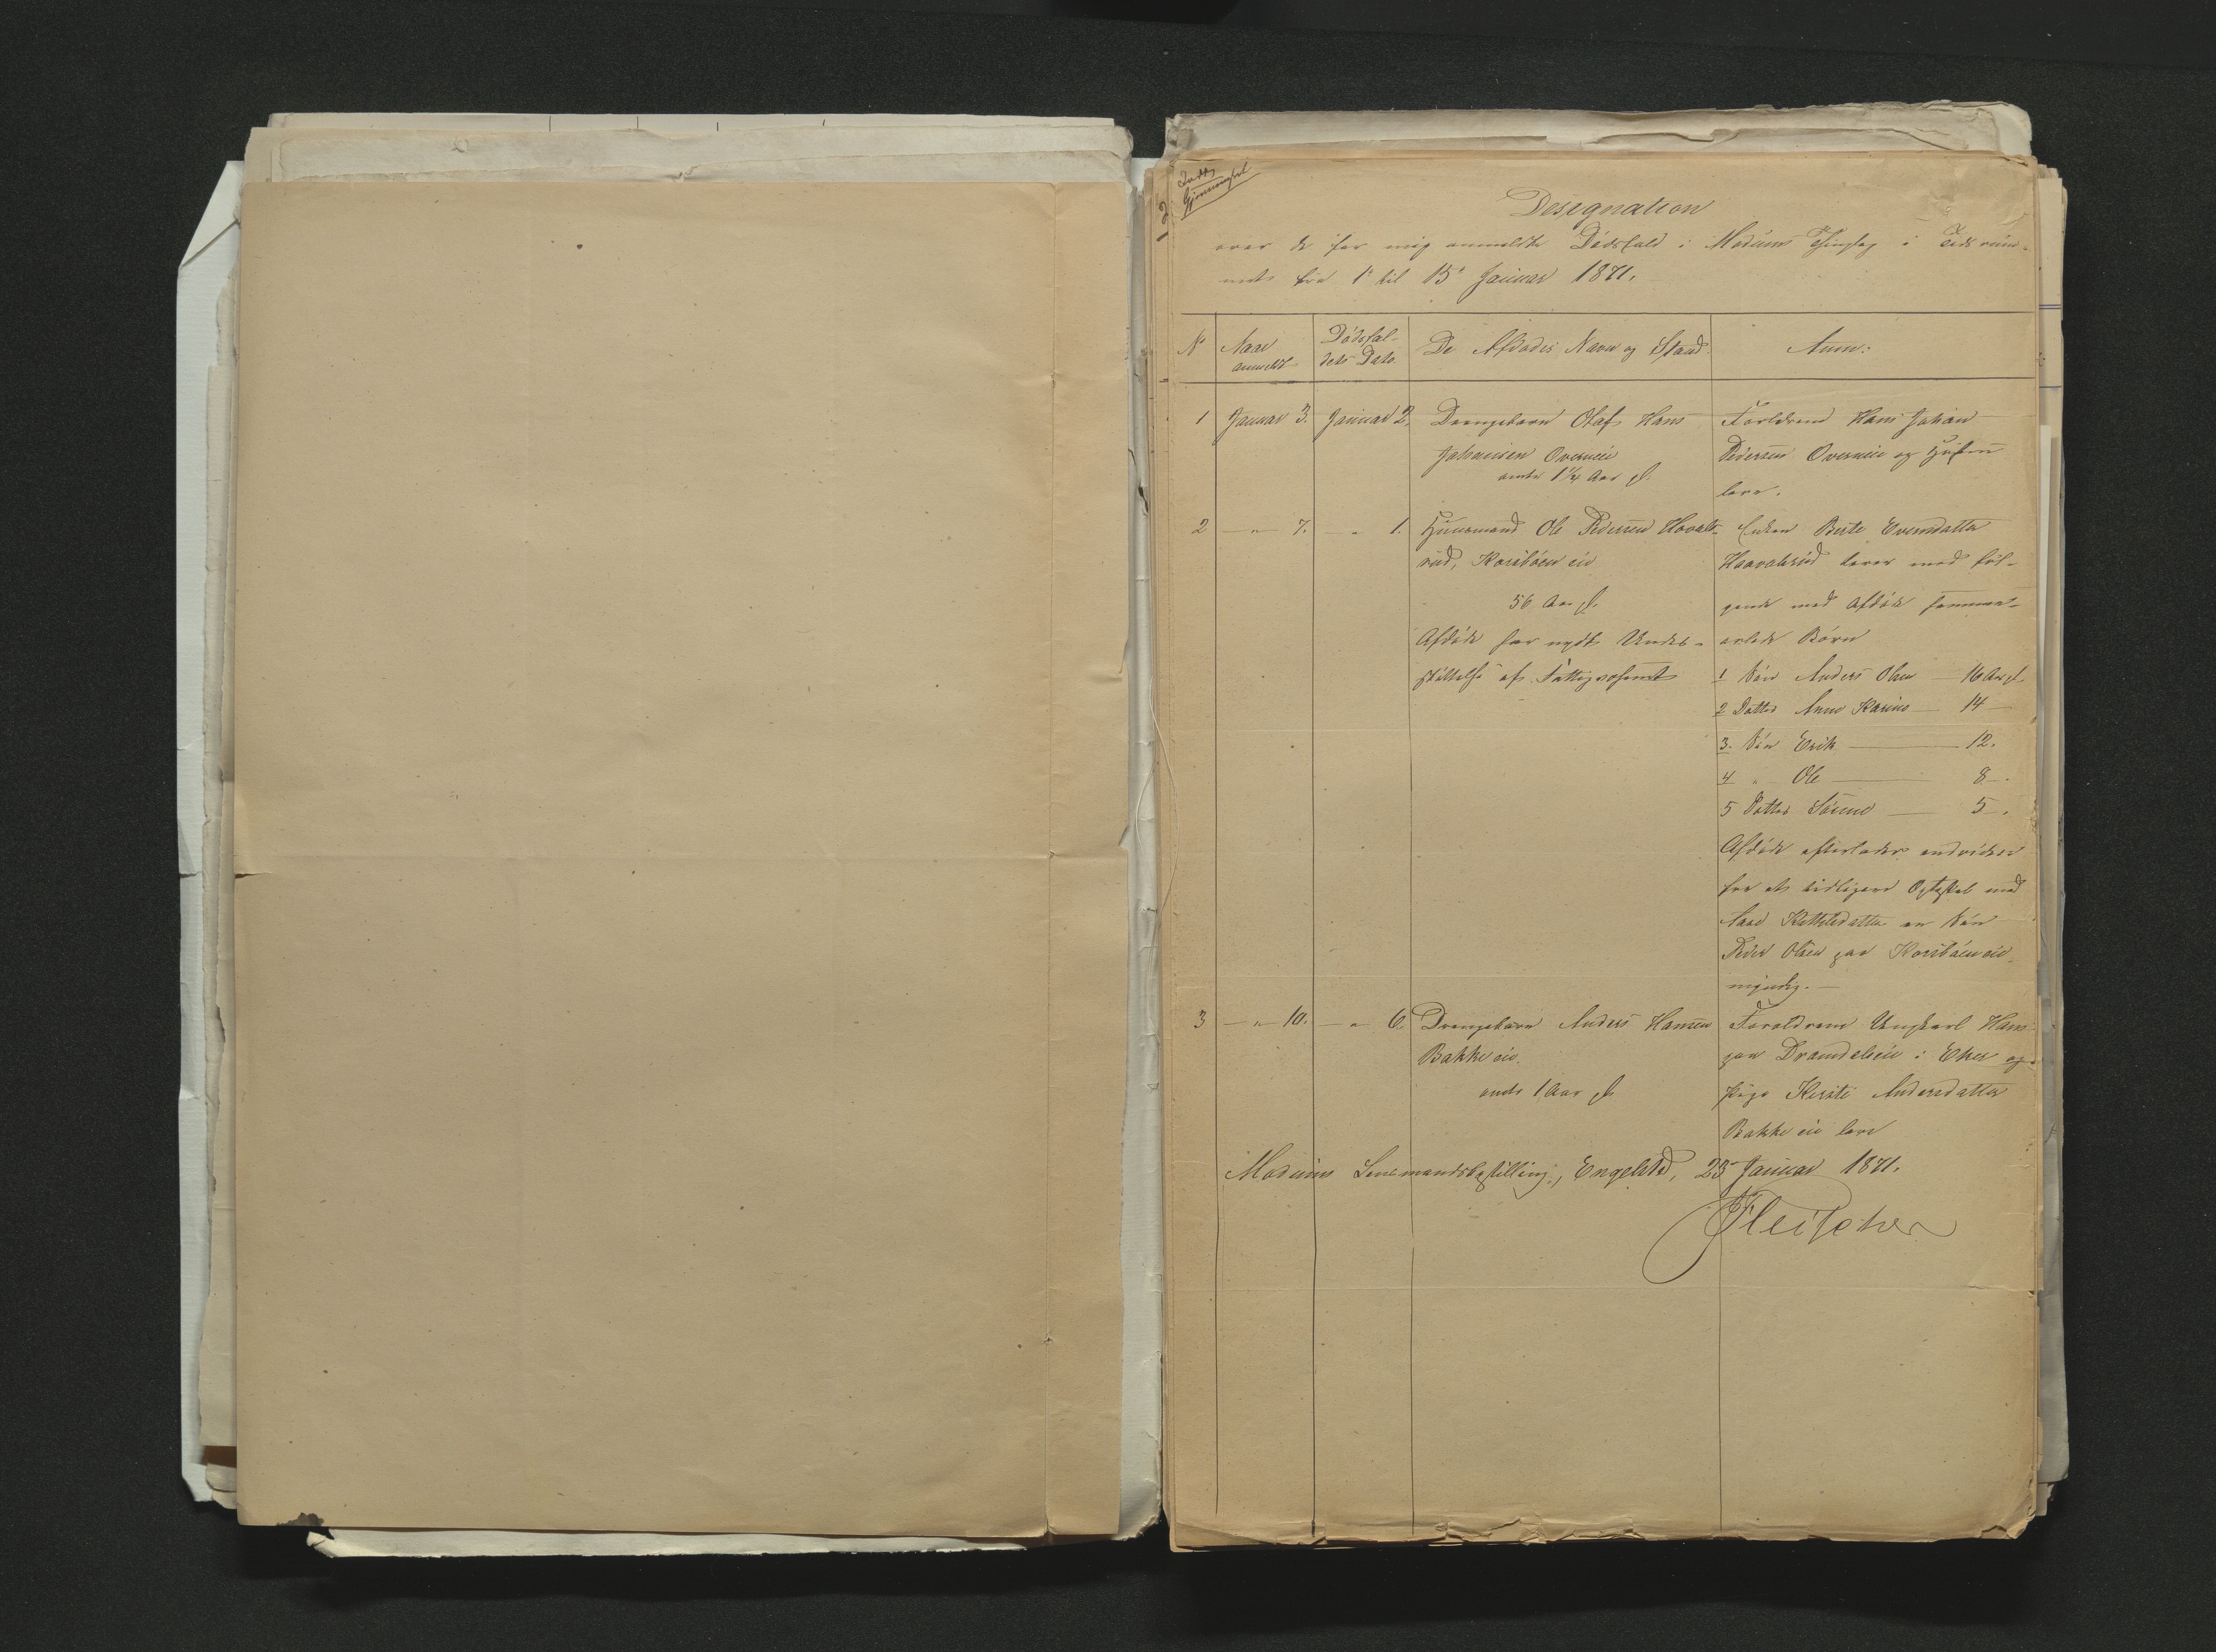 Designation
over de for mig anmeldte Dødsfald i Modums Thinglag i Tidsrum-
met fra 1 til 15 Januar 1871.
No
Naar anmeldt
Dødsfal-
dets Dato
De Afdødes Navn og Stand
Anm:
1 Januar 3. Januar 2.
Drengebarn Olaf Hans
Johansen Overneie
omtr 1 1/4 Aar gl.
Forældrene Hans Johan
Pedersen Overneie og Hustru
leve.
2 — " 7. — " 1.
Huusmand Ole Pedersen Hovals-
rud, Korsbøen eie
56 Aar gl.
Afdøde har nydt Under-
støttelse af Fattigvæsenet
Enken Berte Evensdatter
Haavalsrud lever med føl-
gende med Afdøde sammen-
avlede Børn
1 Søn Anders Olsen — 16 Aar gl
2 Datter Anne Karine — 14 —
3. Søn Erik — 12.
4 " Ole — 8 .
5 Datter — 5 .
Afdøde efterlader endvidere
fra et tidligere Egteskab med
Kittelsdatter en Søn
Peder Olsen paa Korsbøen eie
myndig. —
3 — " 10. — " 6.
Drengebarn Anders Hansen
Bakke eie.
omtr 1 Aar gl.
Forældrene Ungkarl Hans
paa i Eker og
Pige Kersti Andersdatter
Bakke eie leve
Modums Lensmandsbestilling, Engelstad, 23 Januar 1871.
Fleischer